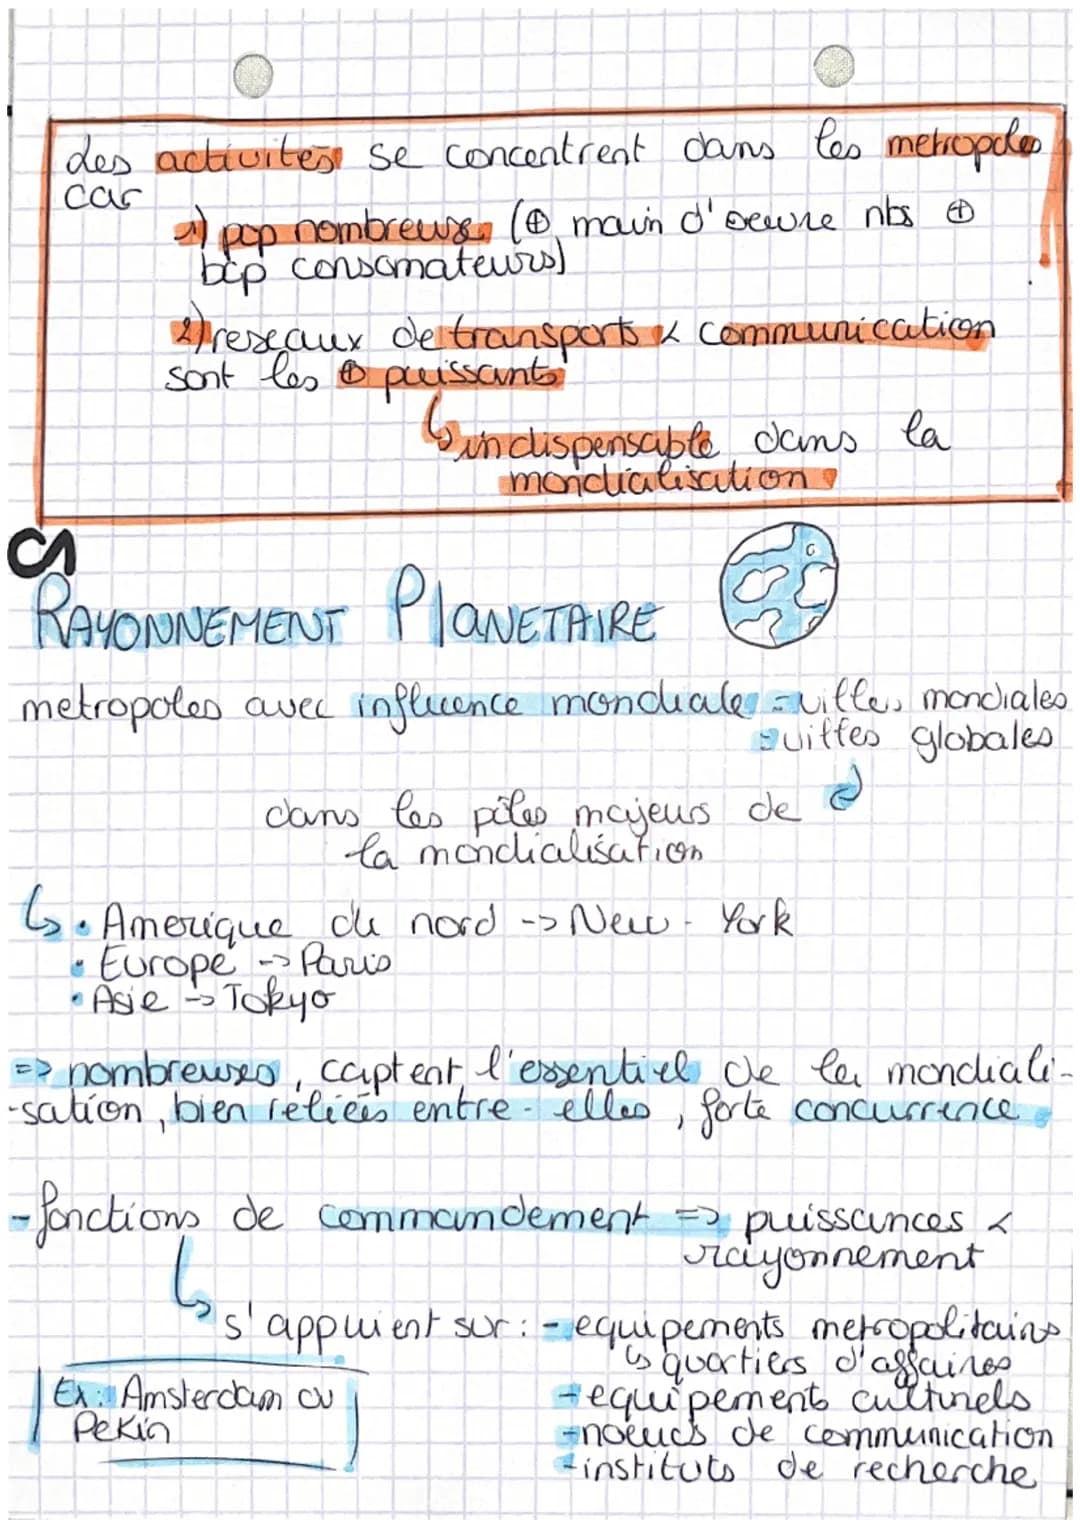 des activités se concentrent dans les metropoles
car
1) pop nombreuse (⊕ main d'oeuvre nbs ⊕
bcp consomateurs)
2) reseaux de transports & communication
sont les ⊕ puissants
↳ indispensable dans la
mondialisation
RAYONNEMENT PlANETAIRE
metropoles avec influence mondiale = villes mondiales
= villes globales
dans les pôles majeurs de
la mondialisation
↳ • Amerique du nord -> New-York
• Europe -> Paris
• Asie -> Tokyo
=> nombreuses, captent l'essentiel de la mondiali-
-sation, bien reliées entre-elles, forte concurrence
- fonctions de commandement => puissances &
rayonnement
↳ s'appuient sur : - equipements metropolitains
↳ quartiers d'affaires
Ex : Amsterdam ou
Pekin
- equipements culturels
- noeuds de communication
- instituts de recherche